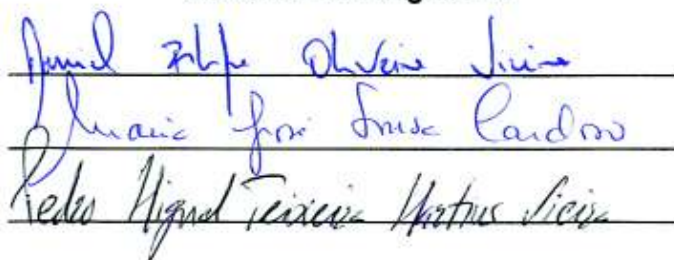 Daniel Filipe Oliveira Vieira
Maria José Sousa Cardoso
Pedro Miguel Teixeira Martins Vieira